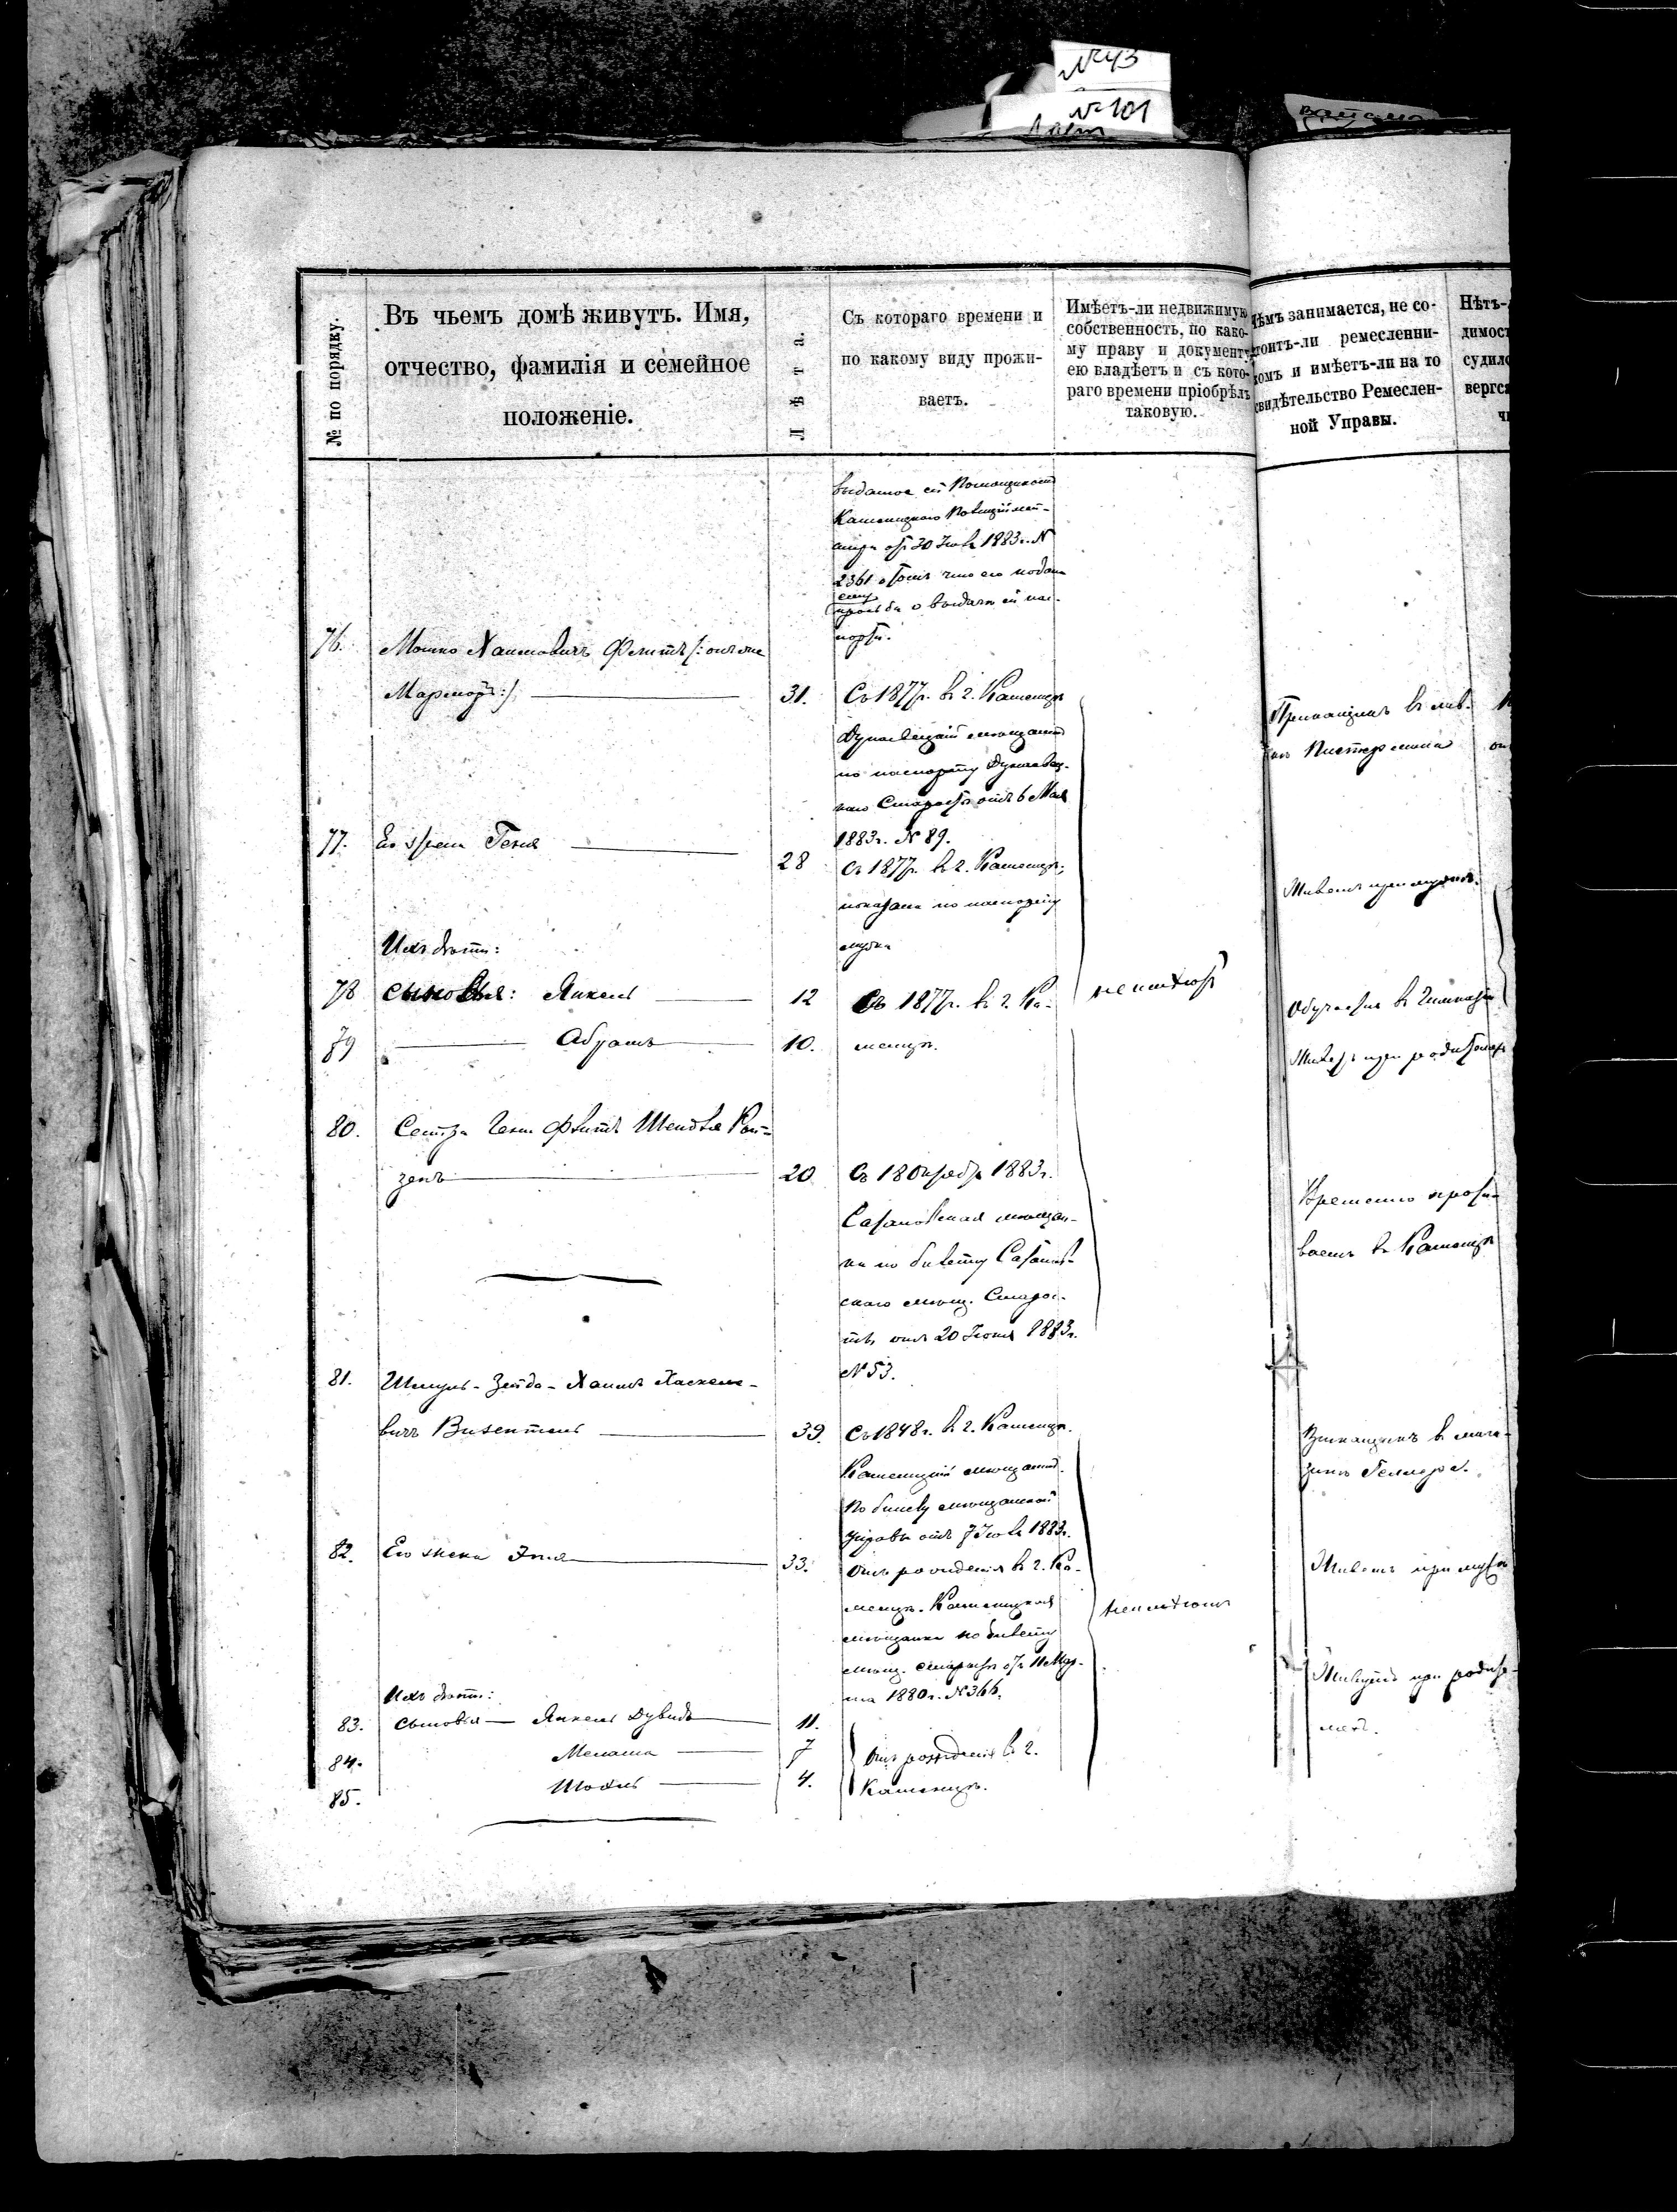 № 43
№ 101
Лист
№ по порядку.
Въ чьемъ домѣ живутъ. Имя,
отчество, фамилія и семейное
положеніе.
Лѣта.
Съ котораго времени и
по какому виду прожи-
ваетъ.
Имѣетъ-ли недвижимую
собственность, по како-
му праву и документу
ею владѣетъ и съ кото-
раго времени пріобрѣлъ
таковую.
Чѣмъ занимается, не со-
стоитъ-ли ремесленни-
комъ и имѣетъ-ли на то
свидѣтельство Ремеслен-
ной Управы.
Нѣтъ-
димост
судилс
вергся
выданное ей Помощникомъ
Каменецкаго Полицій мей-
стера отъ 30 Іюля 1883 г. №
2361 о томъ что ею подана
ему
просьба о выдачи ей пас-
порта.
76. Мошко Хаимовичъ Фельтъ /: онъ же
Марморъ :/ 31. Съ 1877 г. въ г. Каменцѣ
Дунаевецкій мѣщанинъ
по паспорту Дунаевец-
каго Старосты отъ 6 Мая
1883 г. № 89.
Прикащикъ въ лав-
кѣ
77. Его жена Геня 28 Съ 1877 г. въ г. Каменцѣ,
показана по паспорту
мужа
Живетъ при мужѣ.
Ихъ дѣти:
78 сыновья: Янкель 12 Съ 1877 г. въ г. Ка-
79 Абрамъ 10. менцѣ.
не имѣютъ
Обучается въ Гимназіи
Живетъ при родителяхъ
80. Сестра Гени Шейдля
зенъ 20 Съ 18 Октября 1883 г.
Сатановская мѣщан-
ка по билету Сатанов-
скаго мѣщ. Старос-
ты отъ 20 Іюня 1883 г.
№ 53.
Временно прожи-
ваетъ въ Каменцѣ
81. Шмуль-Зейда-Хаимъ Хаскеле-
вичъ Визентель 39. Съ 1848 г. въ г. Каменцѣ.
Каменецкій мѣщанинъ.
По билету мѣщанской
Управы отъ 7 Іюля 1883 г.
Прикащикъ въ мага-
зинѣ Геллера.
82. Его жена Эня 33. Отъ рожденія въ г. Ка-
менцѣ. Каменецкая
мѣщанка по билету
мѣщ. старосты отъ 11 Мар-
та 1880 г. № 366.
не имѣютъ
Живетъ при мужѣ
Ихъ дѣти:
83. сыновья — Янкель Дувидъ 11.
84. Менаша 7
85. 4.
Отъ рожденія въ г.
Каменцѣ.
Живутъ при родите-
ляхъ.